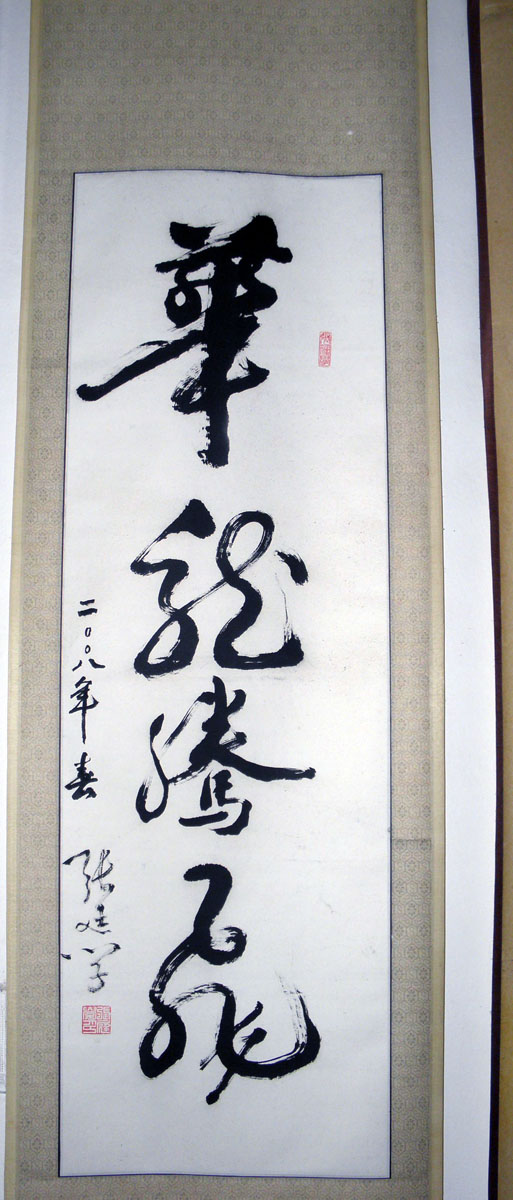 華龍騰飛
二〇〇八年春
張